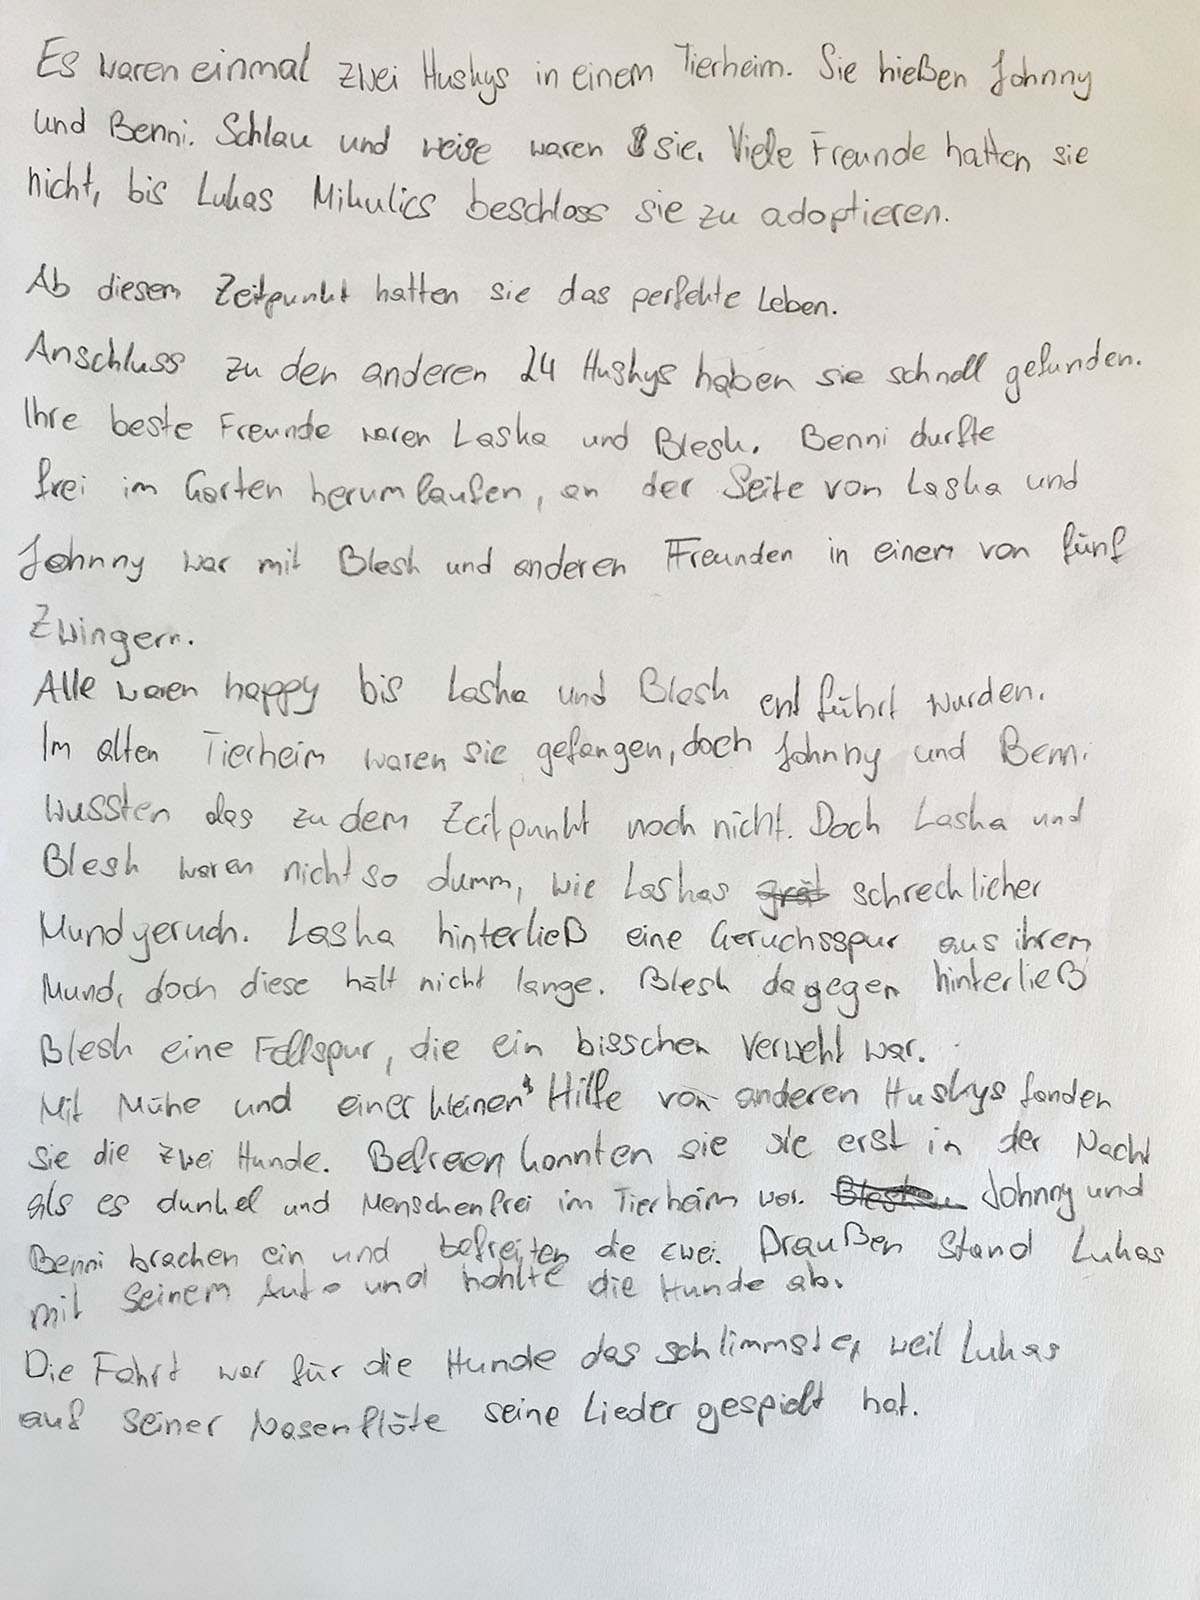 Es waren einmal zwei Huskys in einem Tierheim. Sie hießen Johnny
und Benni. Schlau und weise waren sie. Viele Freunde hatten sie
nicht, bis Lukas Mikulics beschloss sie zu adoptieren.
Ab diesem Zeitpunkt hatten sie das perfekte Leben.
Anschluss zu den anderen 24 Huskys haben sie schnell gefunden.
Ihre beste Freunde waren Laska und Blesk. Benni durfte
frei im Garten herumlaufen, an der Seite von Laska und
Johnny war mit Blesk und anderen Freunden in einem von fünf
Zwingern.
Alle waren happy bis Laska und Blesk entführt wurden.
Im alten Tierheim waren sie gefangen, doch Johnny und Benni
wussten das zu dem Zeitpunkt noch nicht. Doch Laska und
Blesk waren nicht so dumm, wie Laskas schrecklicher
Mundgeruch. Laska hinterließ eine Geruchsspur aus ihrem
Mund, doch diese hält nicht lange. Blesk dagegen hinterließ
Blesk eine Fellspur, die ein bisschen verweht war.
Mit Mühe und einer kleinen Hilfe von anderen Huskys fanden
sie die zwei Hunde. Befreen konnten sie sie erst in der Nacht
als es dunkel und Menschenfrei im Tierheim war. Johnny und
Benni brachen ein und befreiten die zwei. Draußen stand Lukas
mit seinem Auto und hohlte die Hunde ab.
Die Fahrt war für die Hunde das schlimmste, weil Lukas
auf seiner Nasenflöte seine Lieder gespielt hat.